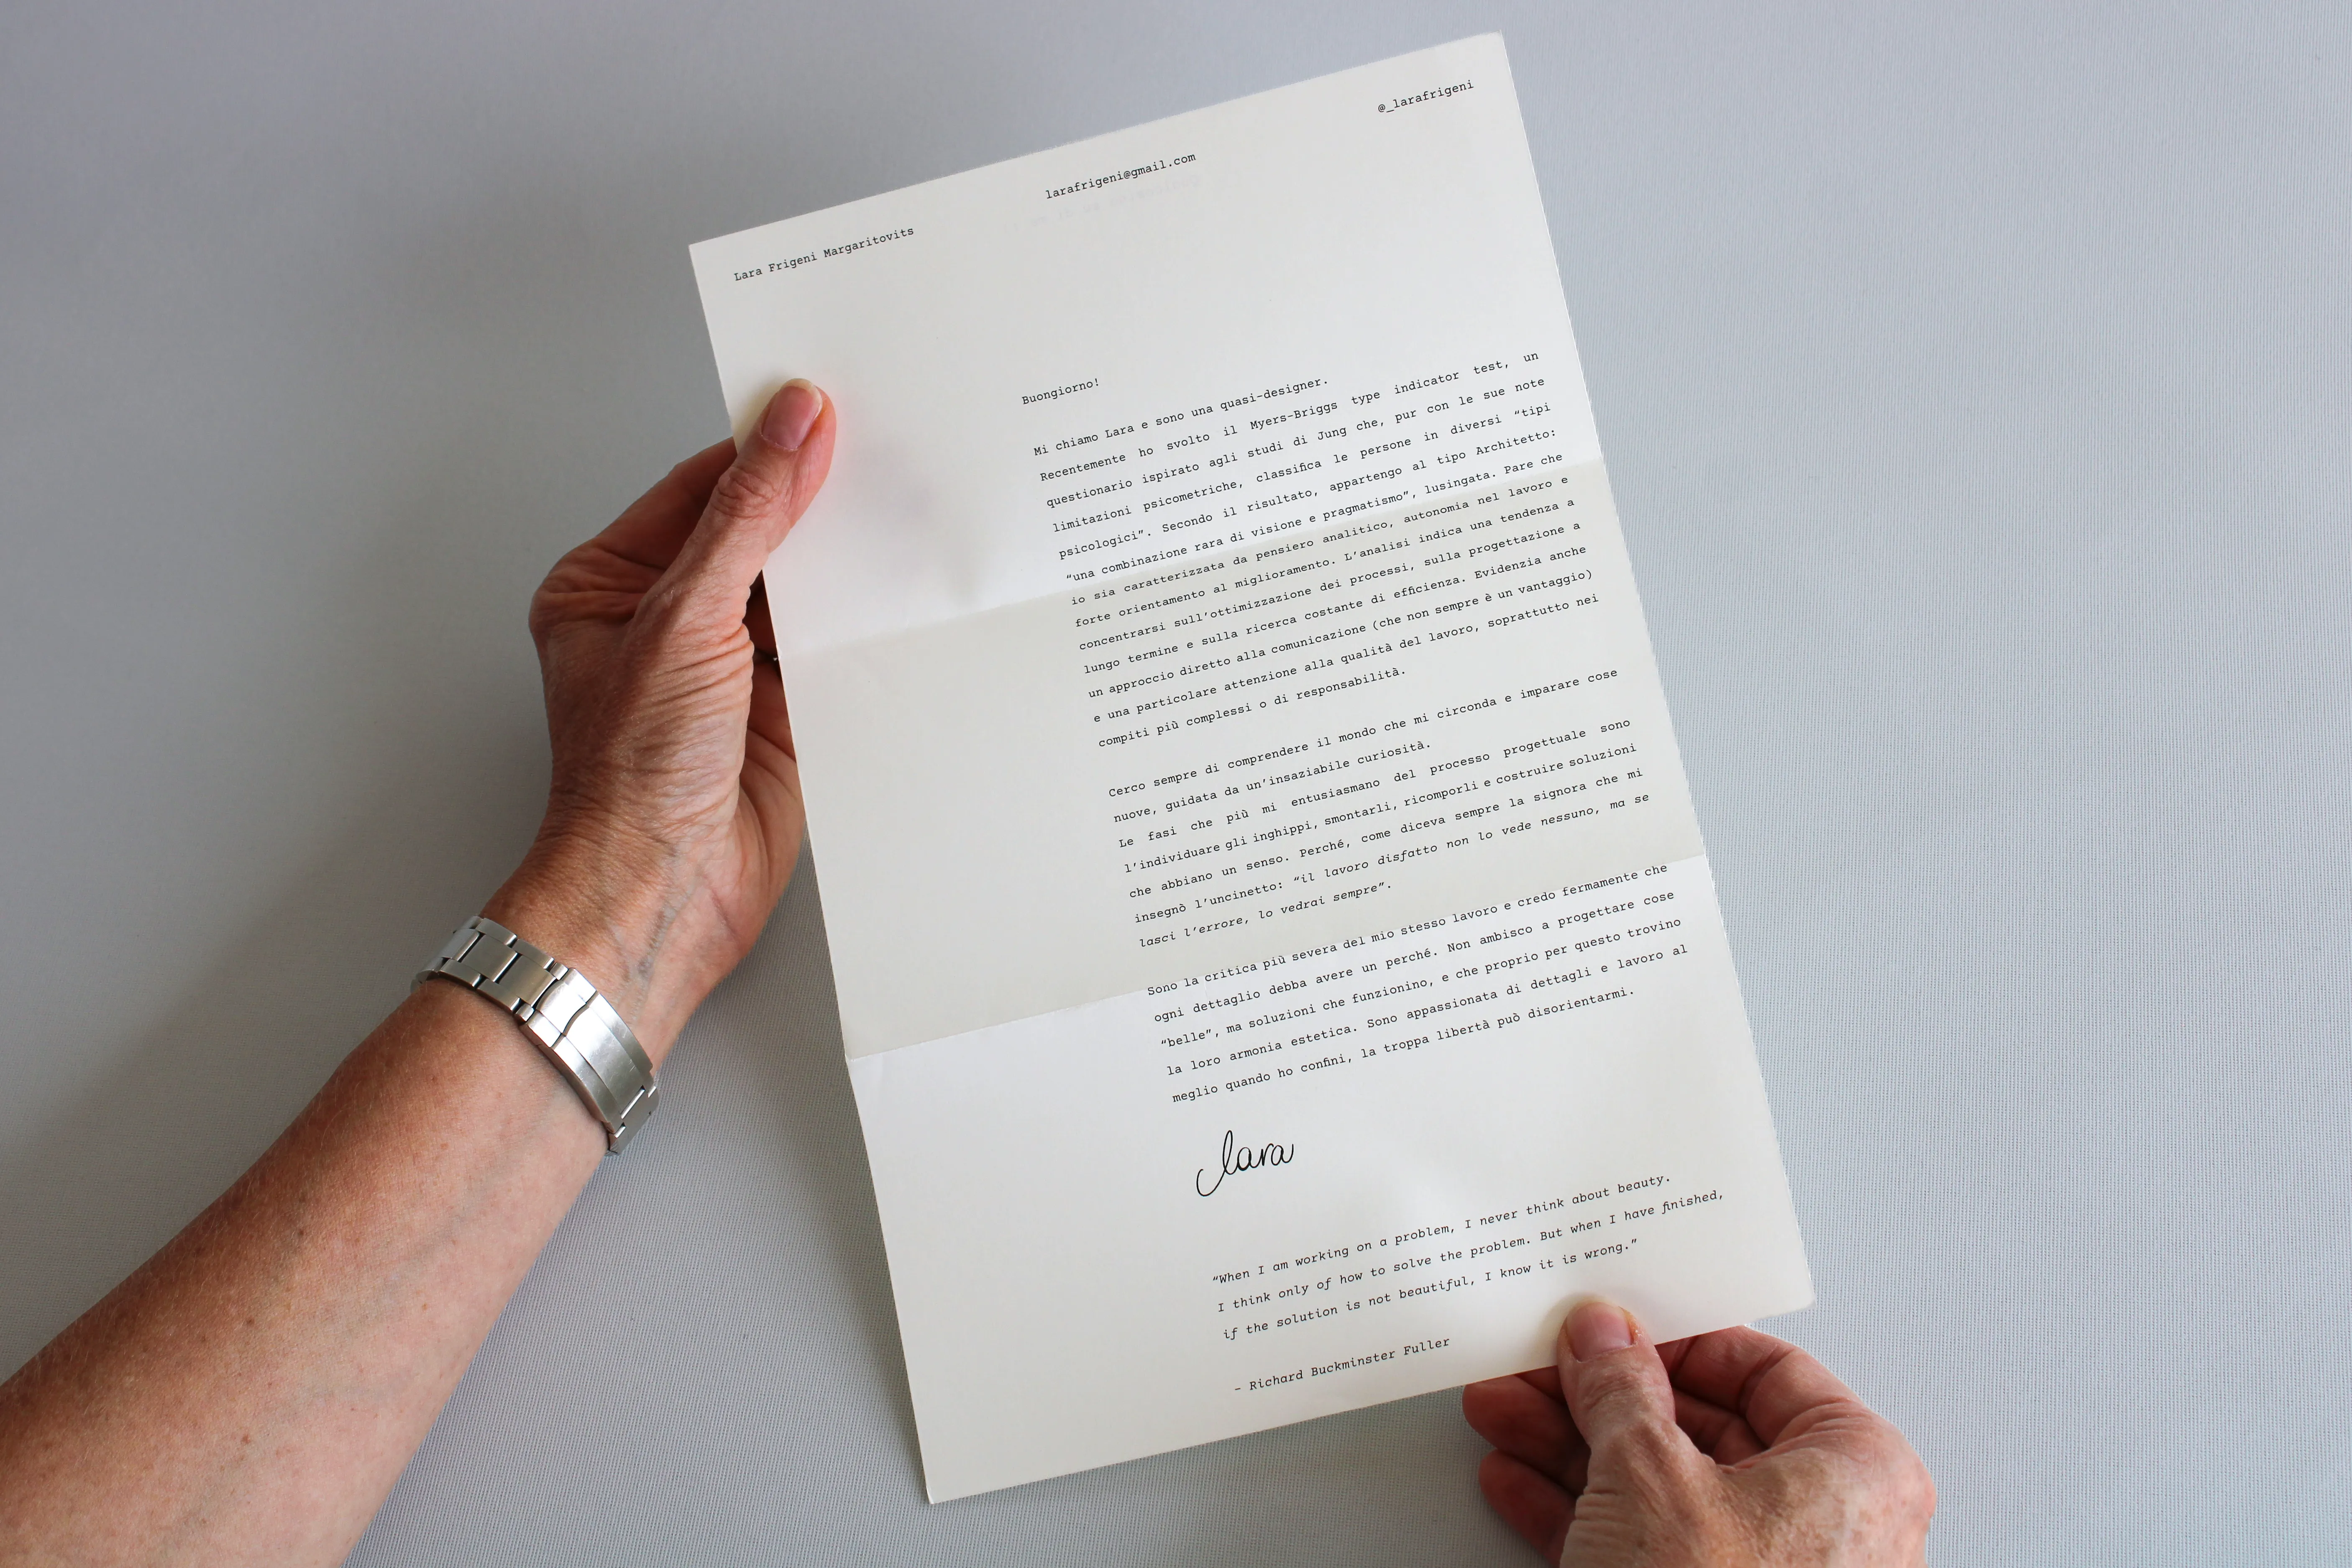 Lara Frigeni Margaritovits
larafrigeni@gmail.com
@_larafrigeni
Buongiorno!
Mi chiamo Lara e sono una quasi-designer.
Recentemente ho svolto il Myers-Briggs type indicator test, un
questionario ispirato agli studi di Jung che, pur con le sue note
limitazioni psicometriche, classifica le persone in diversi “tipi
psicologici”. Secondo il risultato, appartengo al tipo Architetto:
“una combinazione rara di visione e pragmatismo”, lusingata. Pare che
io sia caratterizzata da pensiero analitico, autonomia nel lavoro e
forte orientamento al miglioramento. L’analisi indica una tendenza a
concentrarsi sull’ottimizzazione dei processi, sulla progettazione a
lungo termine e sulla ricerca costante di efficienza. Evidenzia anche
un approccio diretto alla comunicazione (che non sempre è un vantaggio)
e una particolare attenzione alla qualità del lavoro, soprattutto nei
compiti più complessi o di responsabilità.
Cerco sempre di comprendere il mondo che mi circonda e imparare cose
nuove, guidata da un’insaziabile curiosità.
Le fasi che più mi entusiasmano del processo progettuale sono
l’individuare gli inghippi, smontarli, ricomporli e costruire soluzioni
che abbiano un senso. Perché, come diceva sempre la signora che mi
insegnò l’uncinetto: “il lavoro disfatto non lo vede nessuno, ma se
lasci l’errore, lo vedrai sempre”.
Sono la critica più severa del mio stesso lavoro e credo fermamente che
ogni dettaglio debba avere un perché. Non ambisco a progettare cose
“belle”, ma soluzioni che funzionino, e che proprio per questo trovino
la loro armonia estetica. Sono appassionata di dettagli e lavoro al
meglio quando ho confini, la troppa libertà può disorientarmi.
lara
“When I am working on a problem, I never think about beauty.
I think only of how to solve the problem. But when I have finished,
if the solution is not beautiful, I know it is wrong.”
– Richard Buckminster Fuller